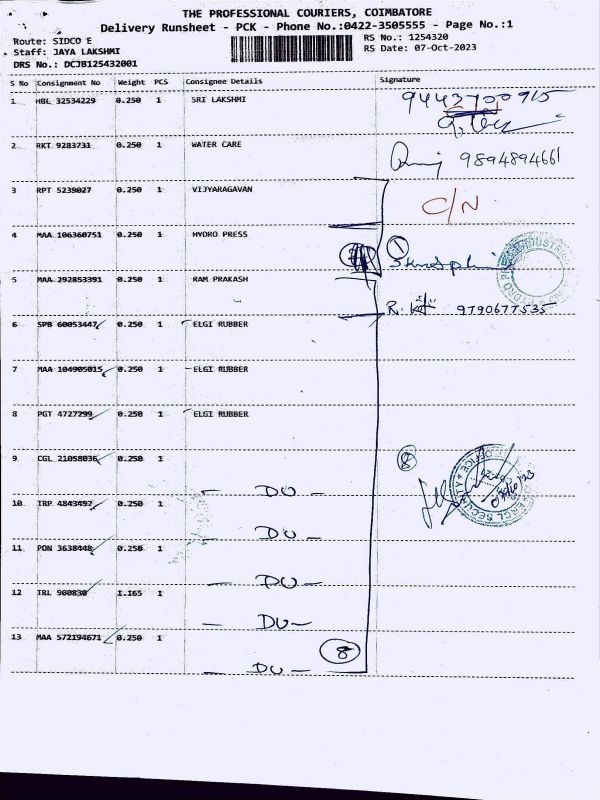 THE PROFESSIONAL COURIERS, COIMBATORE
Delivery Runsheet - PCK - Phone No.:0422-3505555 - Page No.:1
Route: SIDCO E
RS No.: 1254320
Staff: JAYA LAKSHMI
RS Date: 07-Oct-2023
DRS No.: DCJB125432001
S No Consignment No Weight PCS Consignee Details Signature
1 HBL 32534229 0.250 1 SRI LAKSHMI 9443700915
2 RKT 9283731 0.250 1 WATER CARE 9894894661
3 RPT 5239027 0.250 1 VIJYARAGAVAN C/N
4 MAA 106360751 0.250 1 HYDRO PRESS 1
5 MAA 292853391 0.250 1 RAM PRAKASH R. 9790677535
6 SPB 60053447 0.250 1 ELGI RUBBER
7 MAA 104905015 0.250 1 ELGI RUBBER
8 PGT 4727299 0.250 1 ELGI RUBBER
9 CGL 21058036 0.250 1 - DO - 8
10 TRP 4843497 0.250 1 - DO -
11 PON 3638448 0.250 1 - DO -
12 IRL 900830 1.165 1 - DO -
13 MAA 572194671 0.250 1 - DO - 8